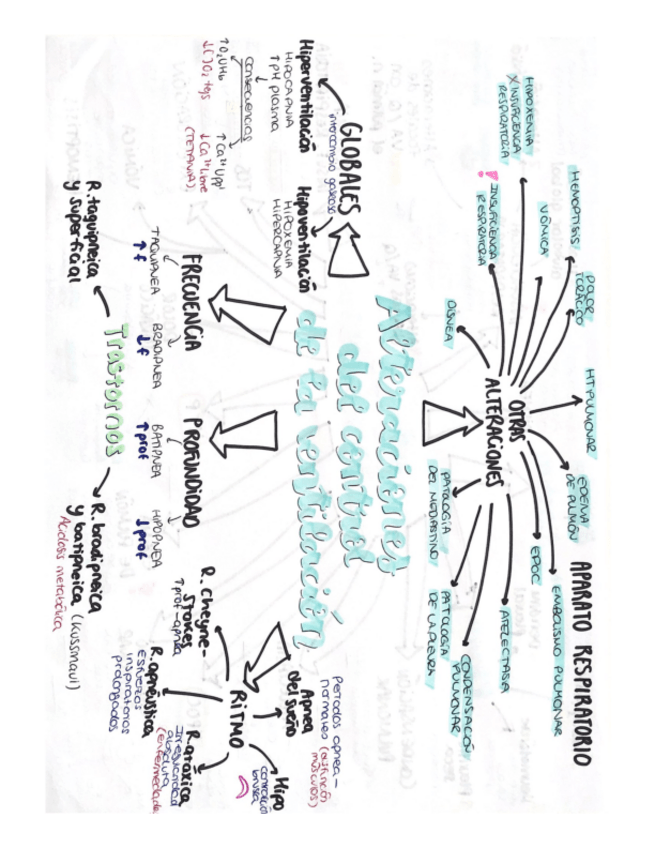 APARATO RESPIRATORIO
Alteraciones
del control
de la ventilación
OTRAS
ALTERACIONES
DISNEA
! INSUFICIENCIA
RESPIRATORIA
HIPOXEMIA
X INSUFICIENCIA
RESPIRATORIA
VÓMICA
HEMOPTISIS
DOLOR
TORÁCICO
HTPULMONAR
EDEMA
DE PULMÓN
EMBOLISMO PULMONAR
EPOC
ATELECTASIA
CONDENSACIÓN
PULMONAR
PATOLOGÍA
DE LA PLEURA
PATOLOGÍA
DEL MEDIASTINO
GLOBALES
intercambio gaseoso
Hiperventilación
HIPOCAPNIA
↑PH plasma
consecuencias
↑O2UHb
↓(O2 tejs
↑Ca2+Upp
↓Ca2+Libre
(TETANIA).
Hipoventilación
HIPOXEMIA
HIPERCAPNIA
FRECUENCIA
TAQUIPNEA
↑f
BRADIPNEA
↓f
PROFUNDIDAD
BATIPNEA
↑prof
HIPOPNEA
↓prof
Trastornos
R. taquipneica
y superficial
R. bradipneica
y batipneica (Kussmaul)
Acidosis metabólica
RITMO
R. Cheyne-
Stokes
↑prof-apnea
R. apnéustica
ESFUERZOS
inspiratorios
prolongados
R. atáxica
Irregularidad
absoluta
(enfermedades
Hipo
contracción
brusca
Apnea
del sueño
Periodos apnea-
normales (disfunción
músculos)